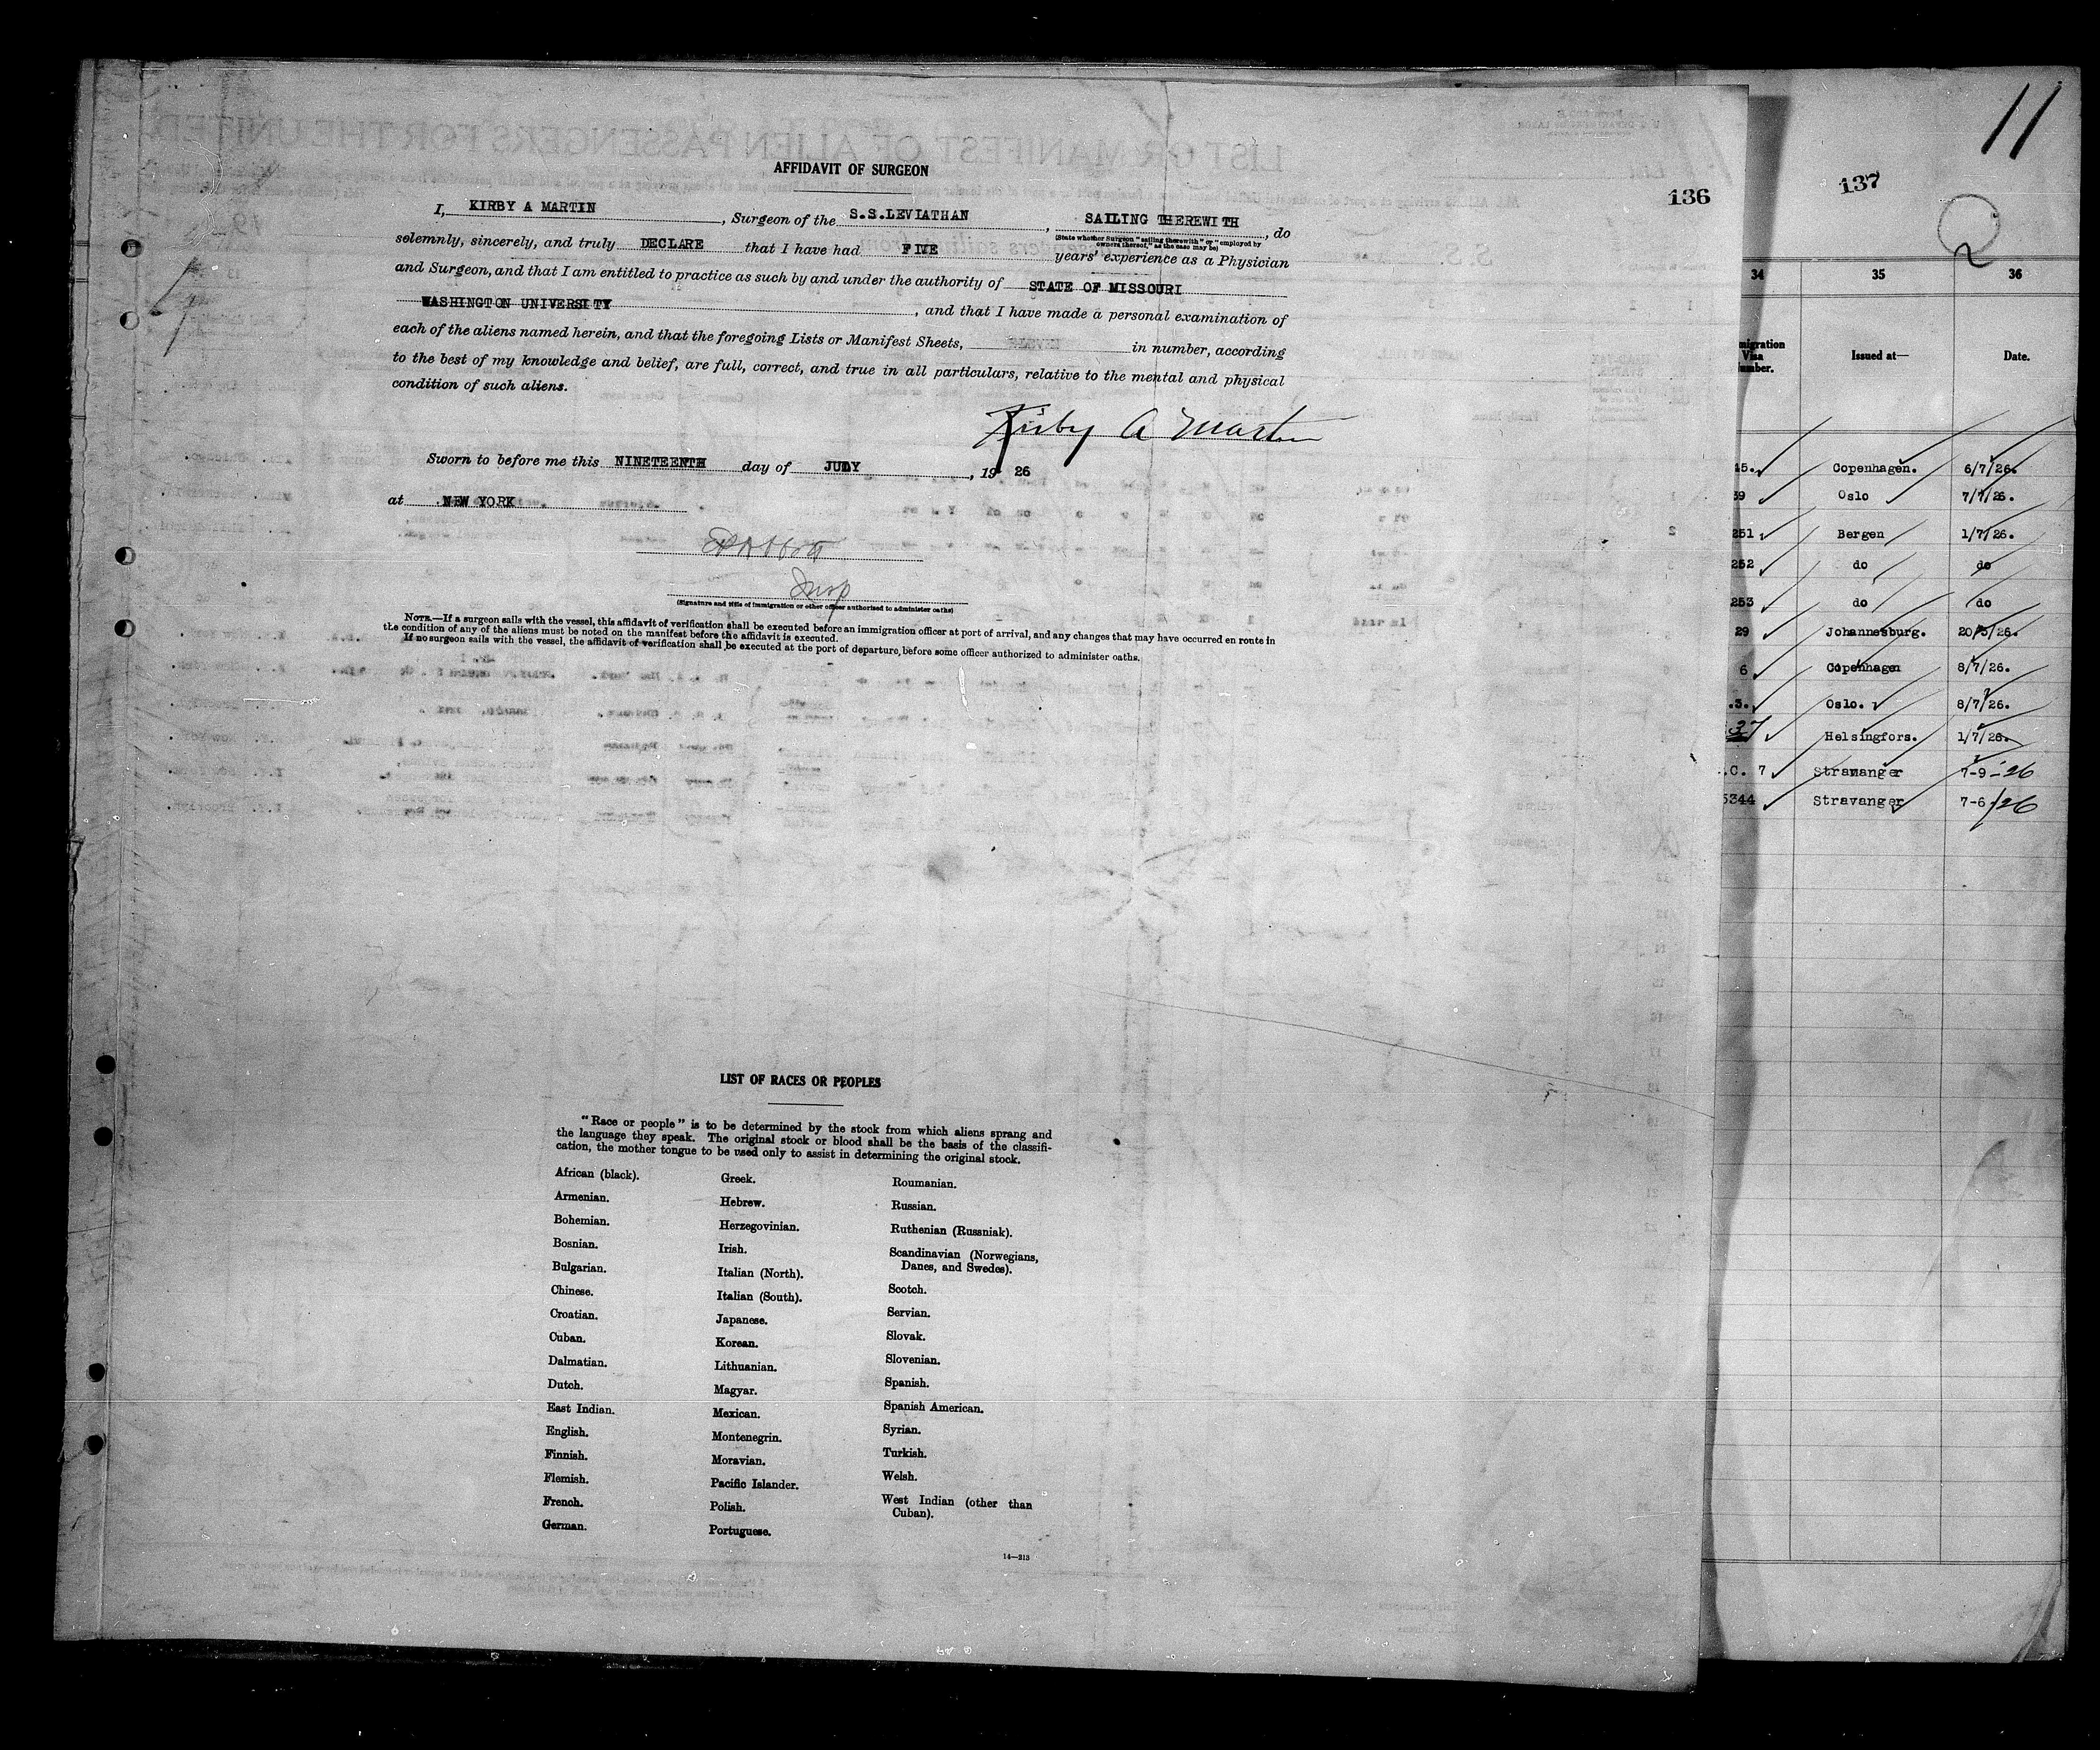 AFFIDAVIT OF SURGEON
136
I, KIRBY A MARTIN, Surgeon of the S.S.LEVIATHAN, SAILING THEREWITH, do
(State whether Surgeon "sailing therewith" or "employed by owners thereof," as the case may be)
solemnly, sincerely, and truly DECLARE that I have had FIVE years' experience as a Physician
and Surgeon, and that I am entitled to practice as such by and under the authority of STATE OF MISSOURI
WASHINGTON UNIVERSITY, and that I have made a personal examination of
each of the aliens named herein, and that the foregoing Lists or Manifest Sheets, ELEVEN in number, according
to the best of my knowledge and belief, are full, correct, and true in all particulars, relative to the mental and physical
condition of such aliens.
Kirby A Martin
Sworn to before me this NINETEENTH day of JULY, 19 26
at NEW YORK
Insp
(Signature and title of immigration or other officer authorized to administer oaths)
NOTE.—If a surgeon sails with the vessel, this affidavit of verification shall be executed before an immigration officer at port of arrival, and any changes that may have occurred en route in
the condition of any of the aliens must be noted on the manifest before the affidavit is executed.
If no surgeon sails with the vessel, the affidavit of verification shall be executed at the port of departure, before some officer authorized to administer oaths.
LIST OF RACES OR PEOPLES
"Race or people" is to be determined by the stock from which aliens sprang and
the language they speak. The original stock or blood shall be the basis of the classifi-
cation, the mother tongue to be used only to assist in determining the original stock.
African (black).
Armenian.
Bohemian.
Bosnian.
Bulgarian.
Chinese.
Croatian.
Cuban.
Dalmatian.
Dutch.
East Indian.
English.
Finnish.
Flemish.
French.
German.
Greek.
Hebrew.
Herzegovinian.
Irish.
Italian (North).
Italian (South).
Japanese.
Korean.
Lithuanian.
Magyar.
Mexican.
Montenegrin.
Moravian.
Pacific Islander.
Polish.
Portuguese.
Roumanian.
Russian.
Ruthenian (Russniak).
Scandinavian (Norwegians,
Danes, and Swedes).
Scotch.
Servian.
Slovak.
Slovenian.
Spanish.
Spanish American.
Syrian.
Turkish.
Welsh.
West Indian (other than
Cuban).
14—213
11
137
2
34 35 36
migration Visa umber. Issued at— Date.
15. Copenhagen. 6/7/26.
39 Oslo 7/7/26.
251 Bergen 1/7/26.
252 do do
253 do do
29 Johannesburg. 20/5/26.
6 Copenhagen 8/7/26.
.3. Oslo. 8/7/26.
37 Helsingfors. 1/7/26.
.C. 7 Stravanger 7-9-26
5344 Stravanger 7-6/26